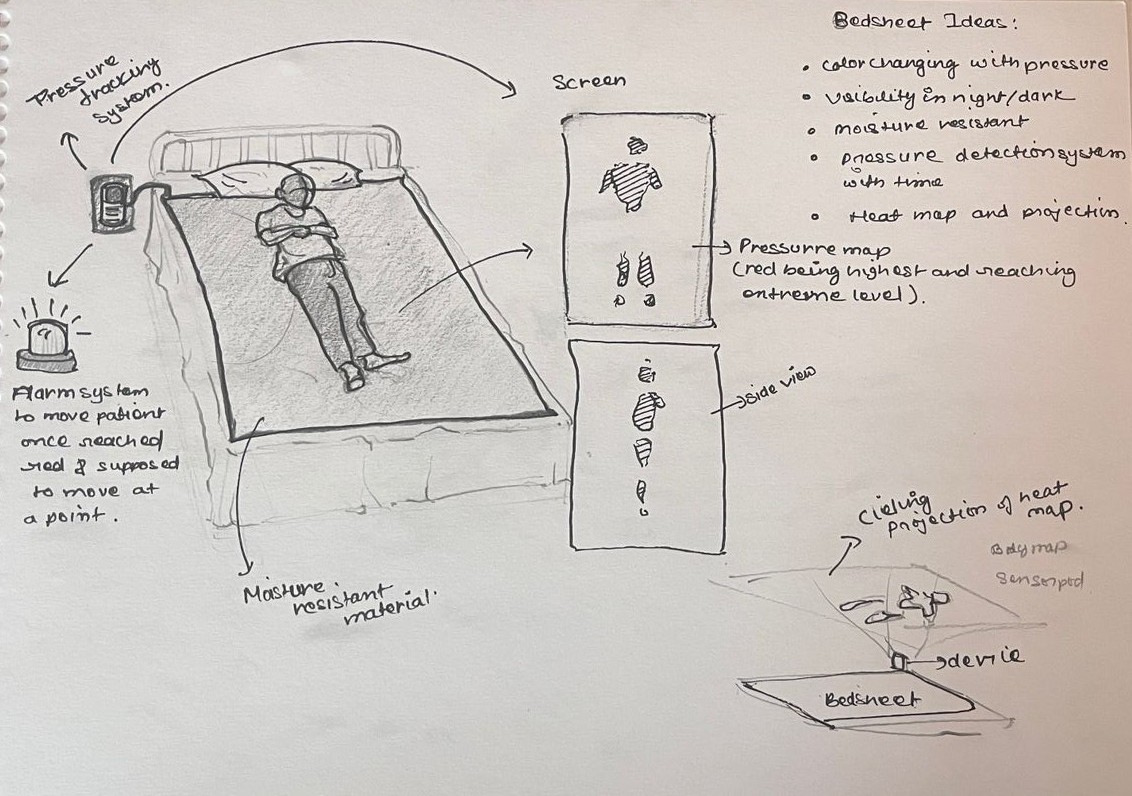 Bedsheet Ideas:
• color changing with pressure
• visibility in night/dark
• moisture resistant
• pressure detection system
with time
• Heat map and projection.
Pressure
tracking
system.
Screen
Pressurre map
(red being highest and reaching
extreme level).
side view
Alarm system
to move patient
once reached
red & supposed
to move at
a point.
Moisture
resistant
material.
Cieling
projection of heat
map.
Body map
Sensorpod
device
Bedsheet